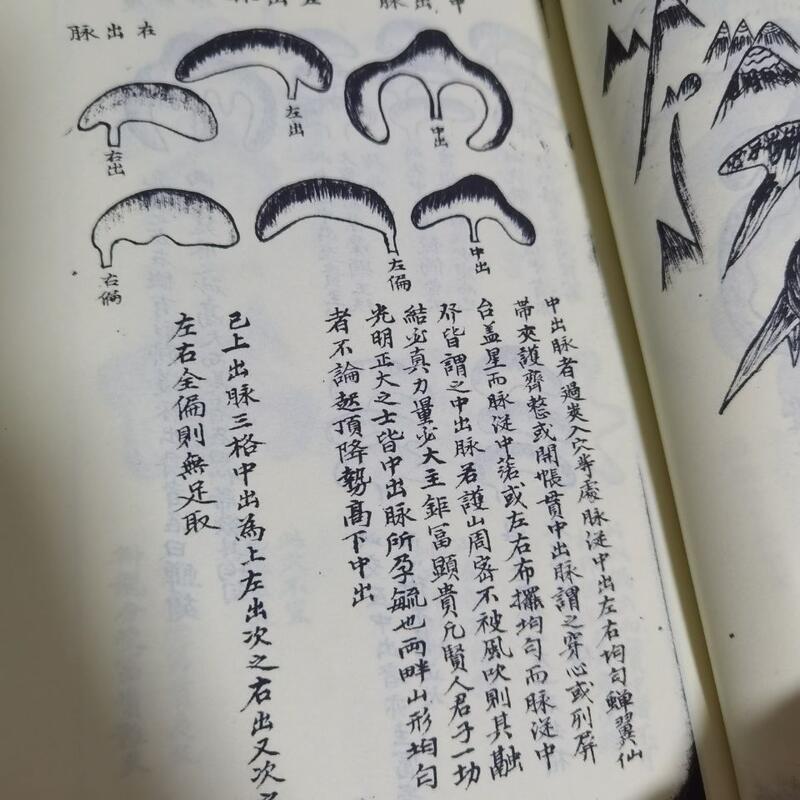 中出脉
右出脉
中出
左出
右出
中出
左偏
右偏
中出脉者過峽入穴等處脉從中出左右均勻蟬翼仙
帶夾護齊整或開帳貫中出脉謂之穿心或列屏
台盖星而脉從中落或左右布擺均勻而脉從中
皆謂之中出脉若護山周密不被風吹則其融
結必真力量必大主鉅冨顯貴凢賢人君子一切
光明正大之士皆中出脉所孕毓也兩畔山形均勻
者不論起頂降勢高下中出
已上出脉三格中出為上左出次之右出又次
左右全偏則無足取